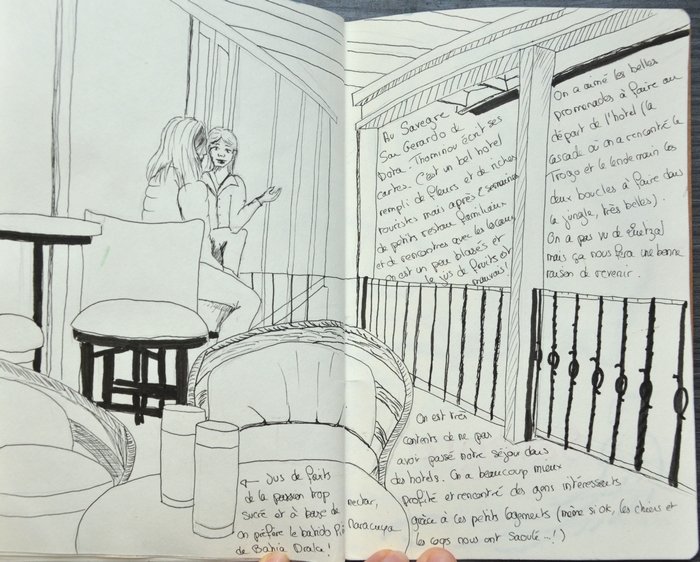 Au Savegre
San Gerardo de
Dota. Thominou écrit ses
cartes. C'est un bel hotel
rempli de fleurs et de riches
touristes mais après 2 semaines
de petits restau familiaux
et de rencontres avec les locaux
on est un peu blasés et
le jus de fruits est
mauvais!
On a aimé les belles
promenades à faire au
départ de l'hotel (la
cascade où on a rencontré le
Trogo et le lendemain les
deux boucles à faire dans
la jungle, très belles).
On a pas vu de Quetzal
mais ça nous fera une bonne
raison de revenir.
← Jus de fruits
de la passion trop
sucré et à base de nectar,
on préfère le batido Maracuya
de Bahia Drake!
On est très
contents de ne pas
avoir passé notre séjour dans
des hotels. On a beaucoup mieux
profité et rencontré des gens intéressants
grâce à ces petits logements (même si ok, les chiens et
les coqs nous ont saoulé...!)